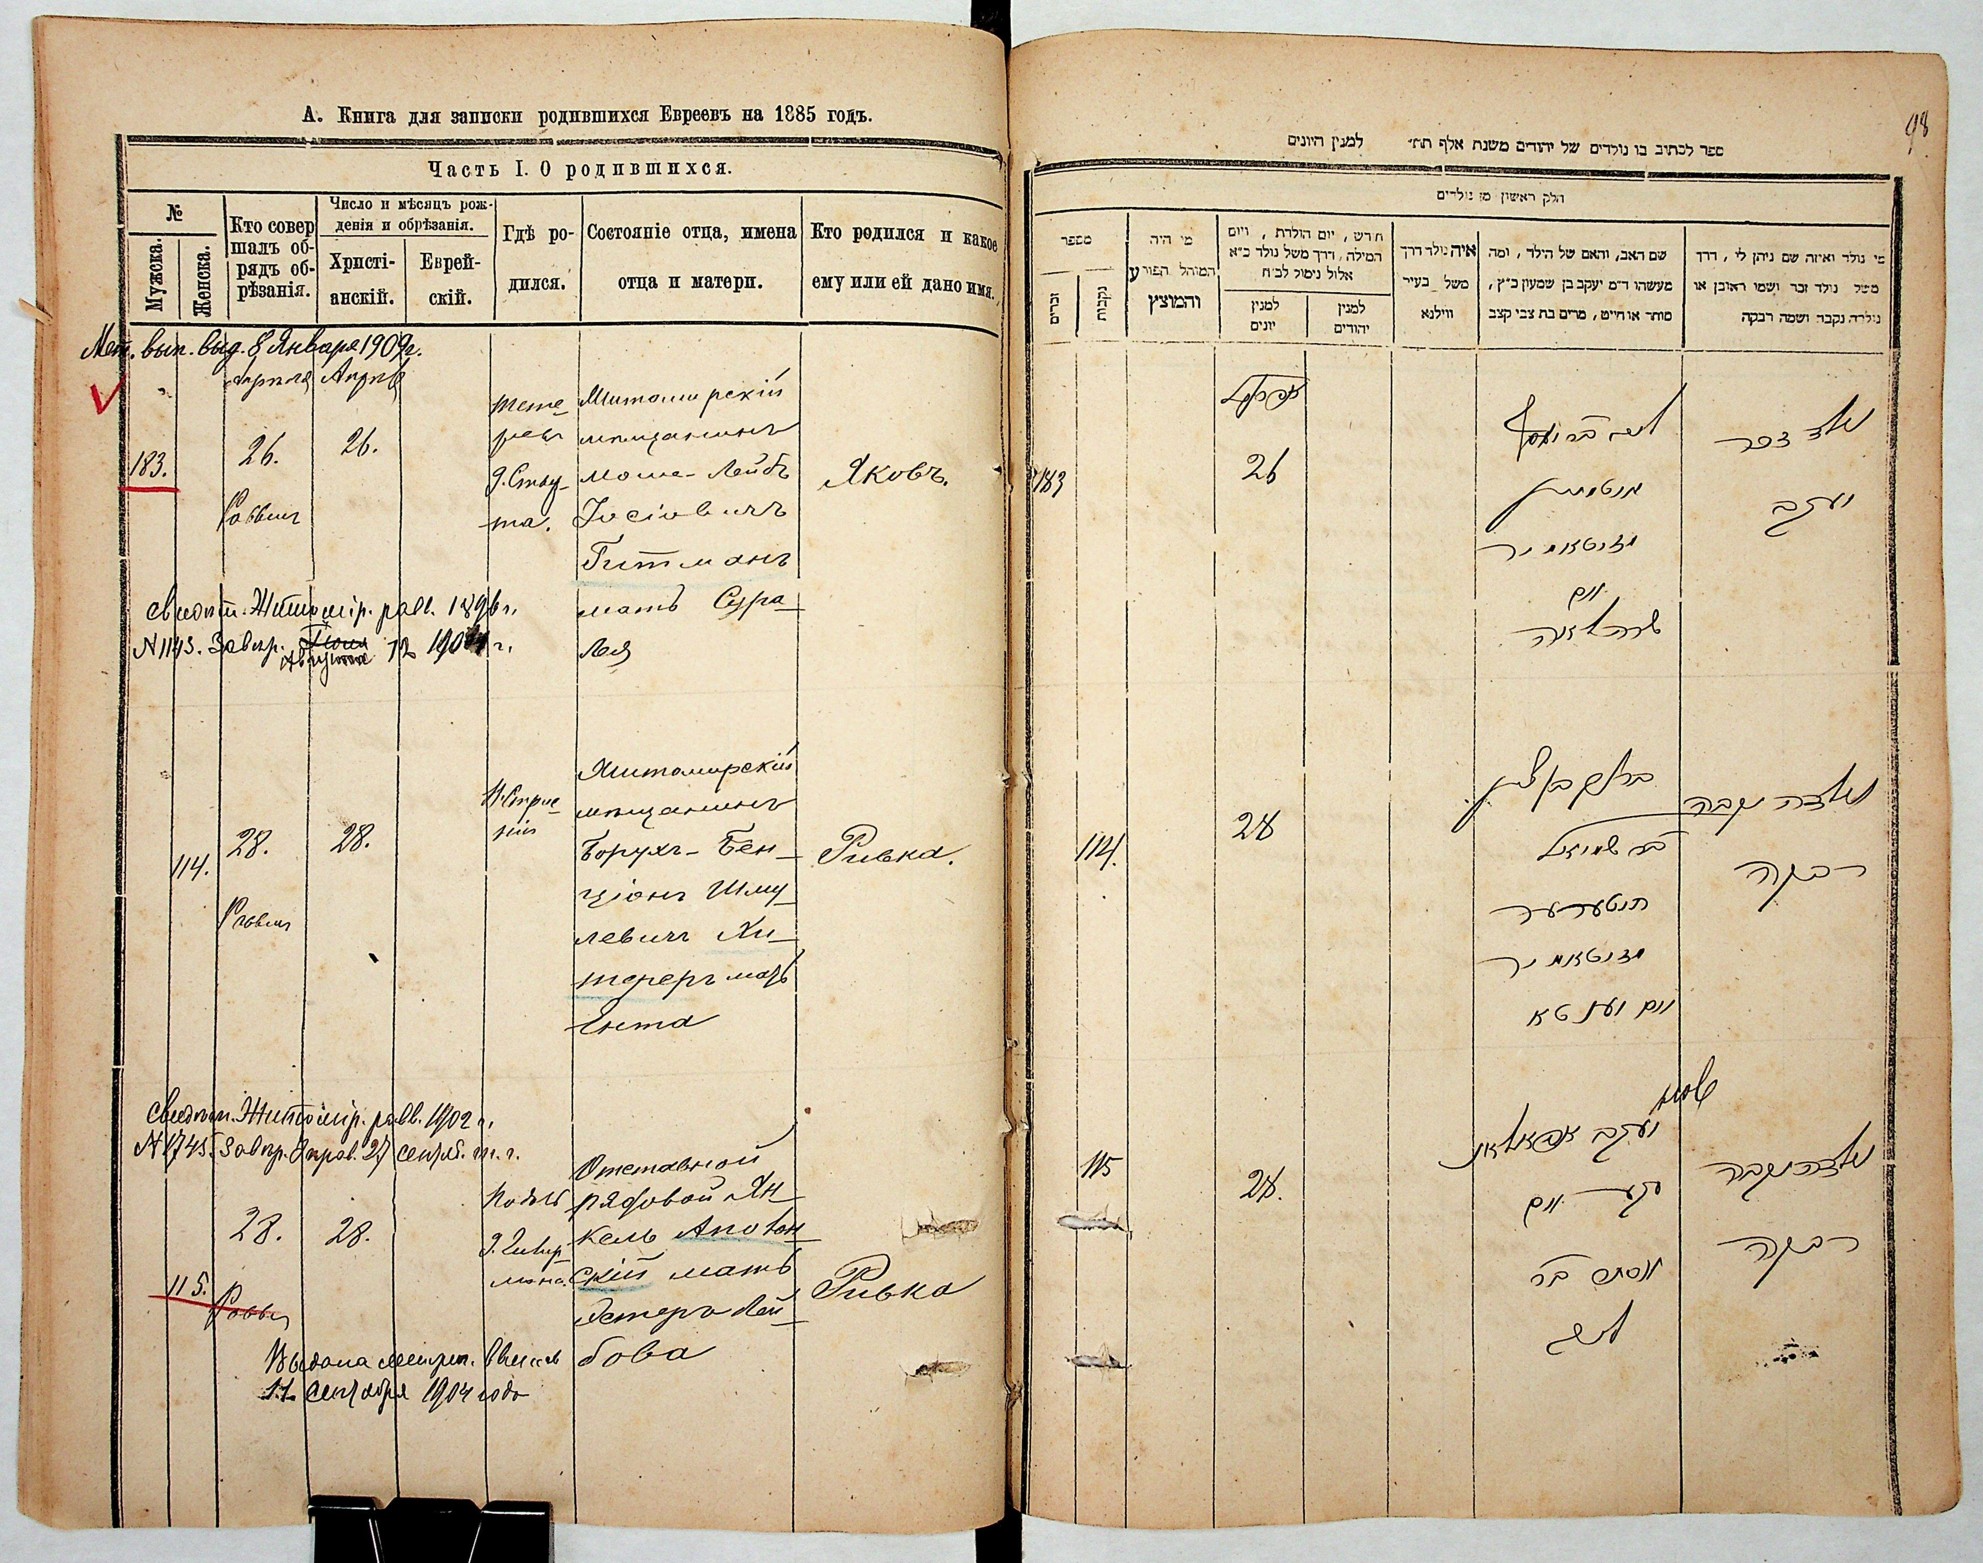 А. Книга для записки родившихся Евреевъ на 1885 годъ.
Часть I. О родившихся.
№
Мужска.
Женска.
Кто совер
шалъ об-
рядъ об-
рѣзанія.
Число и мѣсяцъ рож-
денія и обрѣзанія.
Христі-
анскій.
Еврей-
скій.
Гдѣ ро-
дился.
Состояніе отца, имена
отца и матери.
Кто родился и какое
ему или ей дано имя.
Мет. вып. выд. 8 Января 1909 г.
Апрѣля Апрѣ
183.
26.
26.
Раввин
Житомирскій
мѣщанинъ
Моше-Лейбъ
Іосіовичъ
Гитманъ
мать Сура
Лея
Яковъ.
свидѣт. Житомір. равв. 1896 г.
N 1143. Завѣр.
Августа 12
114.
28.
28.
Раввин
Житомирскій
мѣщанинъ
Борухъ-Бен-
ціонъ Шму-
левичъ Хи-
терер мать
Ента
Ривка.
свидѣт. Житомір. равв. 1902 г.
N 1745. Завѣр. 27 сентяб. т. г.
115.
28.
28.
Равви
Отставной
рядовой Ян-
кель Аполон-
скій мать
Эстеръ Лей-
бова
Ривка
Выдана метрич.
11 сентября 1904 года
98
ספר לכתוב בו נולדים של יהודים משנת אלף תת״ למנין היונים
חלק ראשון מן נולדים
מספר
זכרים
נקבות
מי היה
המוהל הפורע
והמוצץ
חדש, יום הולדת, ויום
המילה, דרך משל נולד כ״א
אלול נימול לכ״ח
למנין
יונים
למנין
יהודים
איה נולד דרך
משל בעיר
ווילנא
שם האב, והאם של הילד, ומה
מעשהו ד״מ יעקב בן שמעון כ״ץ,
סוחר או חייט, מרים בת צבי קצב
מי נולד ואיזה שם ניתן לו, דרך
משל נולד זכר ושמו ראובן או
נולדה נקבה ושמה רבקה
183
אפריל
26
ליב בר יוסף
גיטמאן
מזיטאמיר
ואם
שרה לאה
נולד זכר
יעקב
114.
28
ברוך בן ציון
בר שמואל
חיטערער
מזיטאמיר
ואם יענטא
נולדה נקבה
רבקה
115
28.
יעקב אפאלאנ
סקי ואם
אסתר בר
ליב
נולדה נקבה
רבקה